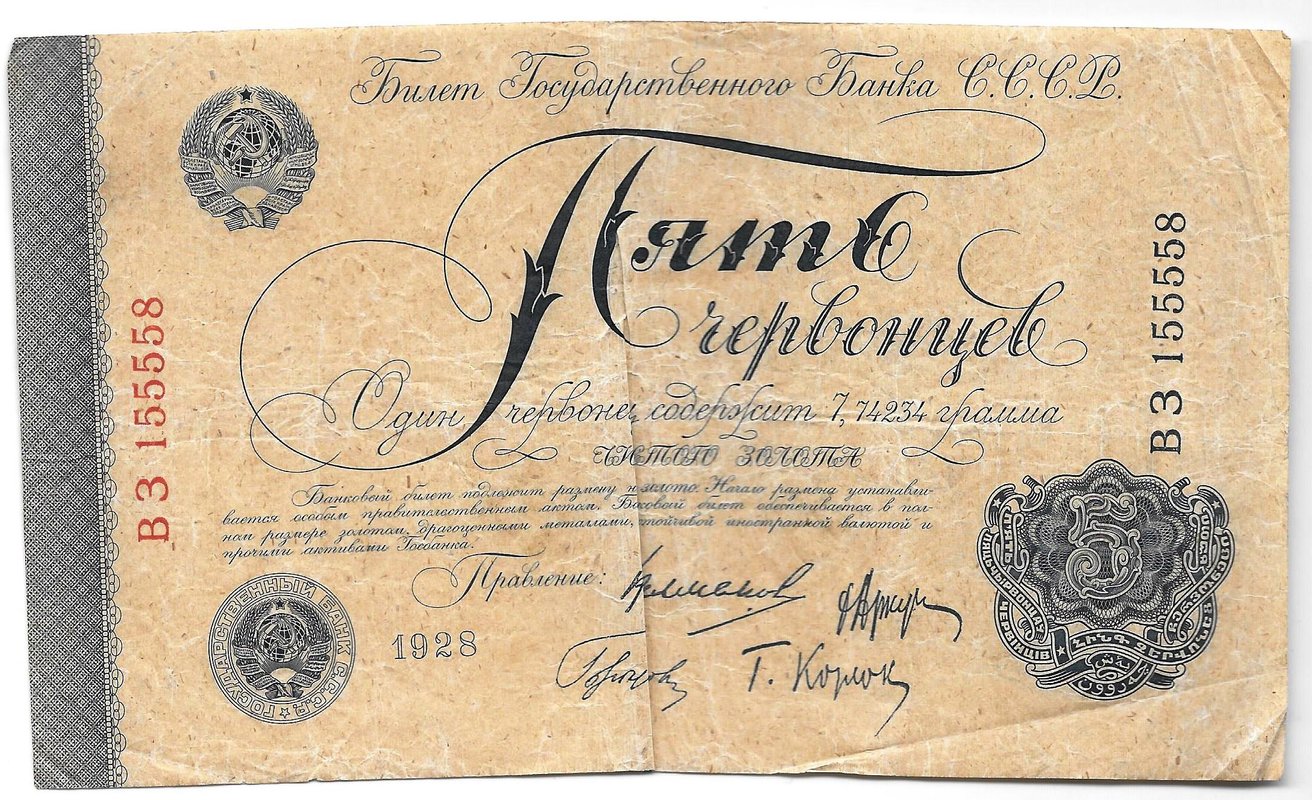 Билет Государственного Банка С.С.С.Р.
Пять
червонцев
Один червонец содержит 7,74234 грамма
ЧИСТОГО ЗОЛОТА
Банковый билет подлежит размену на золото. Начало размена устанавли-
вается особым правительственным актом. Банковый билет обеспечивается в пол-
ном размере золотом, драгоценными металлами, устойчивой иностранной валютой и
прочими активами Госбанка.
Правление:
1928
Т. Корлок
ВЗ 155558
ВЗ 155558
ГОСУДАРСТВЕННЫЙ БАНК С.С.С.Р.
5